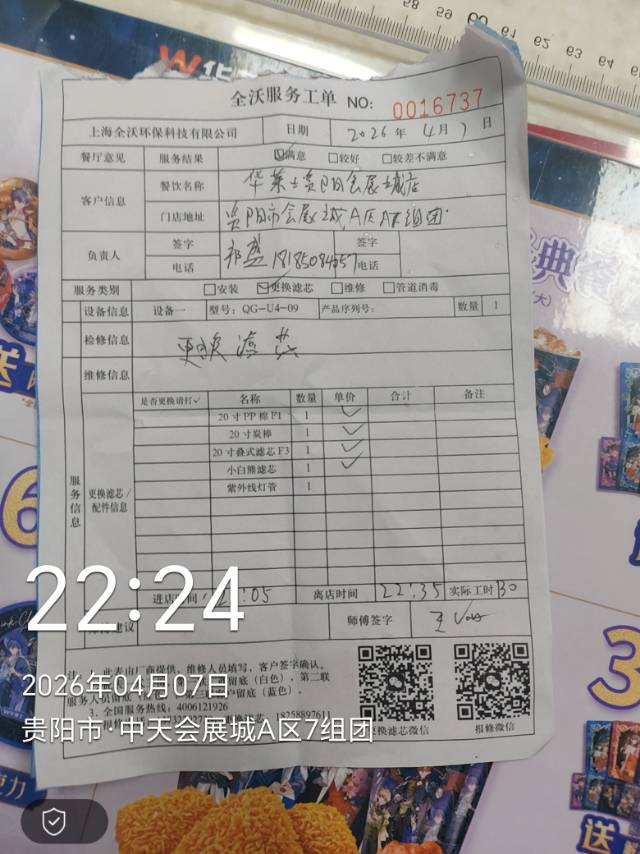 全沃服务工单 NO: 0016737
上海全沃环保科技有限公司 日期 2026年4月7日
餐厅意见 服务结果 ☑满意 □较好 □较差不满意
客户信息 餐饮名称 华莱士贵阳会展城店
门店地址 贵阳市会展城A区A7组团
负责人 签字 签字
电话 电话
服务类别 □安装 ☑更换滤芯 □维修 □管道消毒
设备信息 设备一 型号: QG-U4-09 产品序列号: 数量 1
检修信息 更换滤芯
维修信息
服务信息
更换滤芯/配件信息
是否更换请打✓ 名称 数量 单价 合计 备注
20寸PP棉F1 1 ✓
20寸炭棒 1 ✓
20寸叠式滤芯F3 1 ✓
小白熊滤芯 1 ✓
紫外线灯管 1
:05 离店时间 22:35 实际工时 30
建议 师傅签字
此表由厂商提供,维修人员填写,客户签字确认。
(白色),第二联
服务人员留底
留底(蓝色)。
3、全国服务热线: 4006121926
18258897611
换滤芯微信 报修微信
22:24
2026年04月07日
贵阳市·中天会展城A区7组团
60 61 62 63 64
W 华
典餐
(大)
送
6
3
送